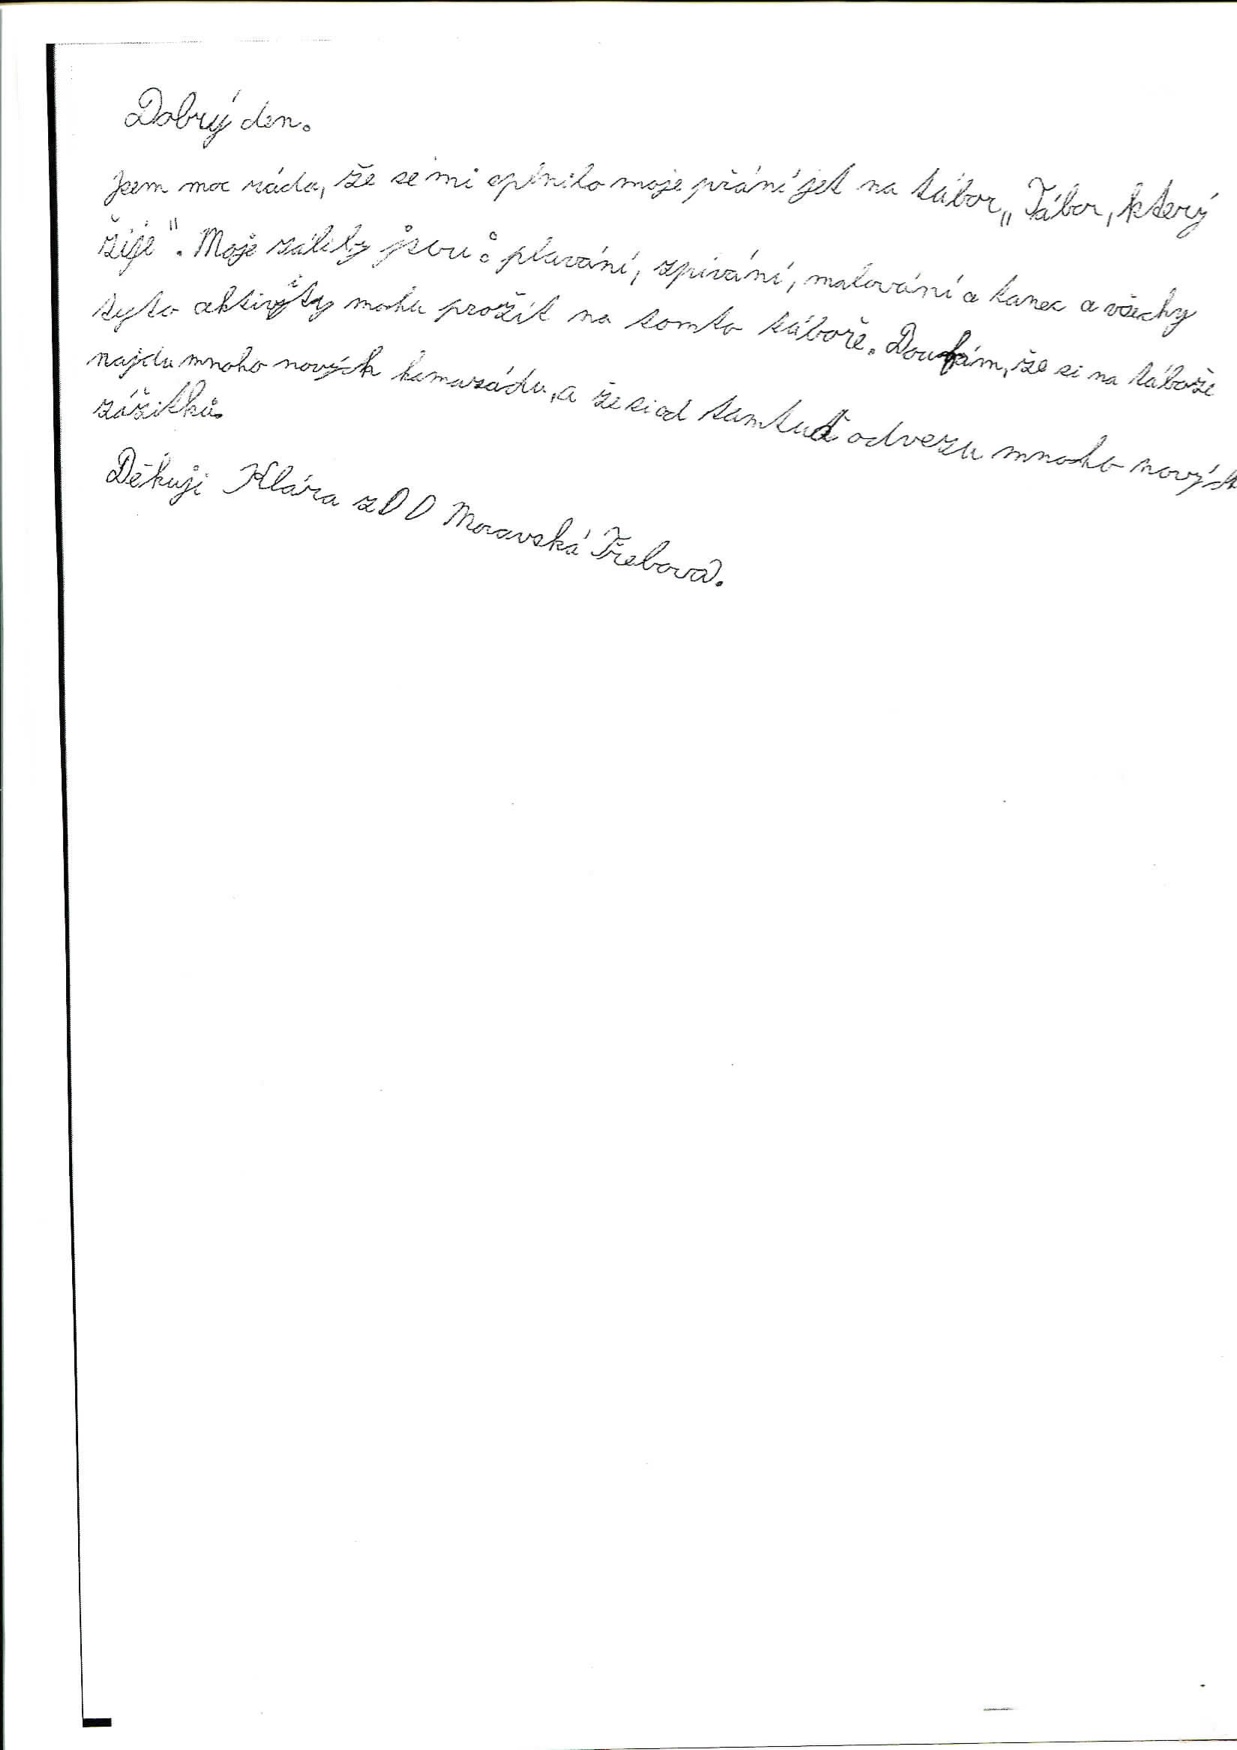 Dobrý den.
Jsem moc ráda, že se mi splnilo moje přání jet na tábor „Tábor, který
žije". Moje záliby jsou: plavání, zpívání, malování a tanec a všechny
tyto aktivity mohu prožít na tomto táboře. Doufám, že si na táboře
najdu mnoho nových kamarádu, a že si od tamtud odvezu mnoho nových
zážitků.
Děkuji Klára z DD Moravská Třebová.